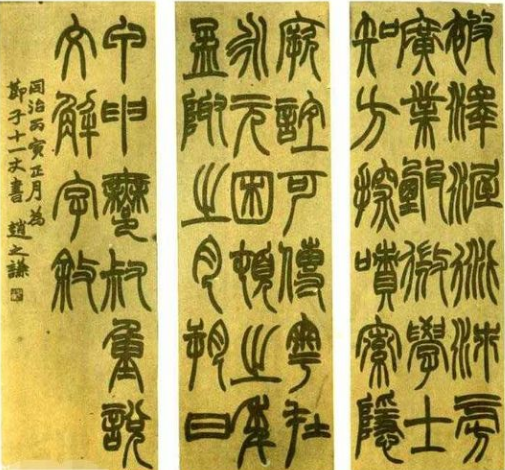 被澤渥衍沛滂
廣業甄微學士
知方探嘖索隱
厥誼可傳粵在
永元困頓之年
孟陬之月朔日
甲申鄦叔重說
文解字敘
同治丙寅正月為
節子十一丈書 趙之謙